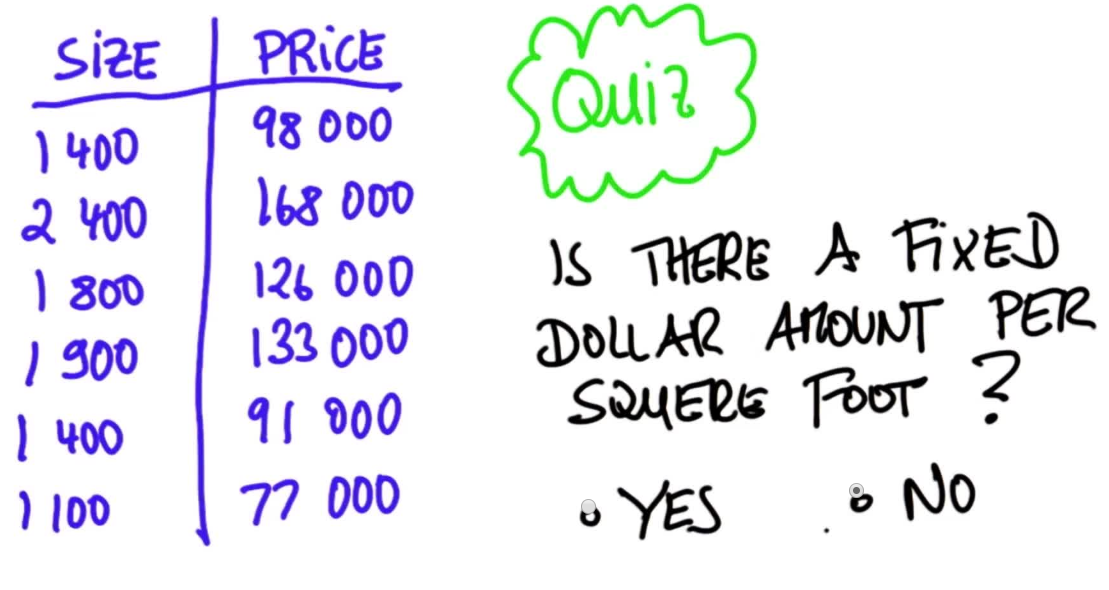 SiZE PRiCE
1 400 98 000
2 400 168 000
1 800 126 000
1 900 133 000
1 400 91 000
1 100 77 000
QUiZ
IS THERE A FiXED
DOLLAR AMOUNT PER
SQUERE FOOT ?
YES NO